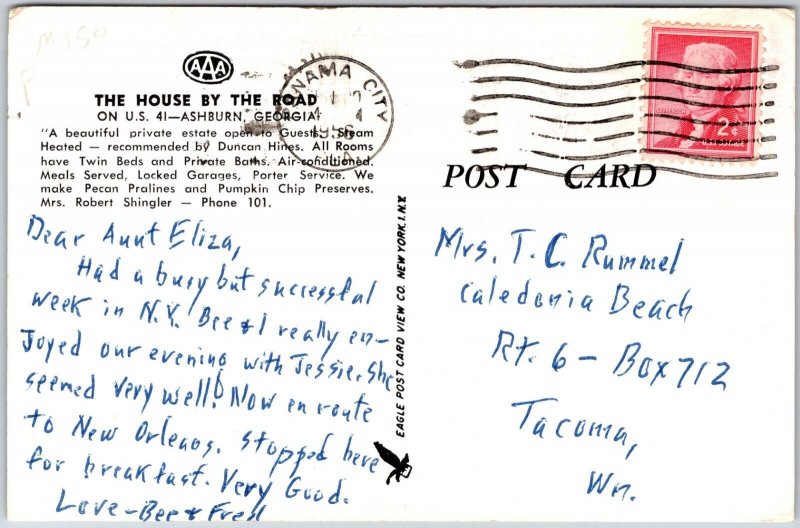 AAA
THE HOUSE BY THE ROAD
ON U.S. 41—ASHBURN, GEORGIA
"A beautiful private estate open to Guests. Steam
Heated — recommended by Duncan Hines. All Rooms
have Twin Beds and Private Baths. Air-conditioned.
Meals Served, Locked Garages, Porter Service. We
make Pecan Pralines and Pumpkin Chip Preserves.
Mrs. Robert Shingler — Phone 101.
Dear Aunt Eliza,
Had a busy but successful
week in N.Y. Bee & I really en-
joyed our evening with Jessie. She
seemed very well! Now en route
to New Orleans. Stopped here
for breakfast. Very Good.
Love - Bee & Fred
EAGLE POST CARD VIEW CO. NEW YORK.1.N.Y.
PANAMA CITY
1956
2¢
POST CARD
Mrs. T. C. Rummel
Caledonia Beach
Rt. 6 - Box 712
Tacoma,
Wn.